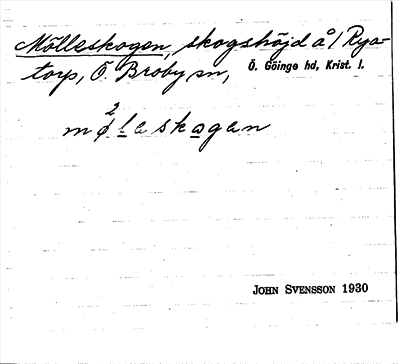 Mölleskogen, skogshöjd å 1 Rya=
torp, Ö. Broby sn, Ö. Göinge hd, Krist. l.
2
møleskogan
JOHN SVENSSON 1930